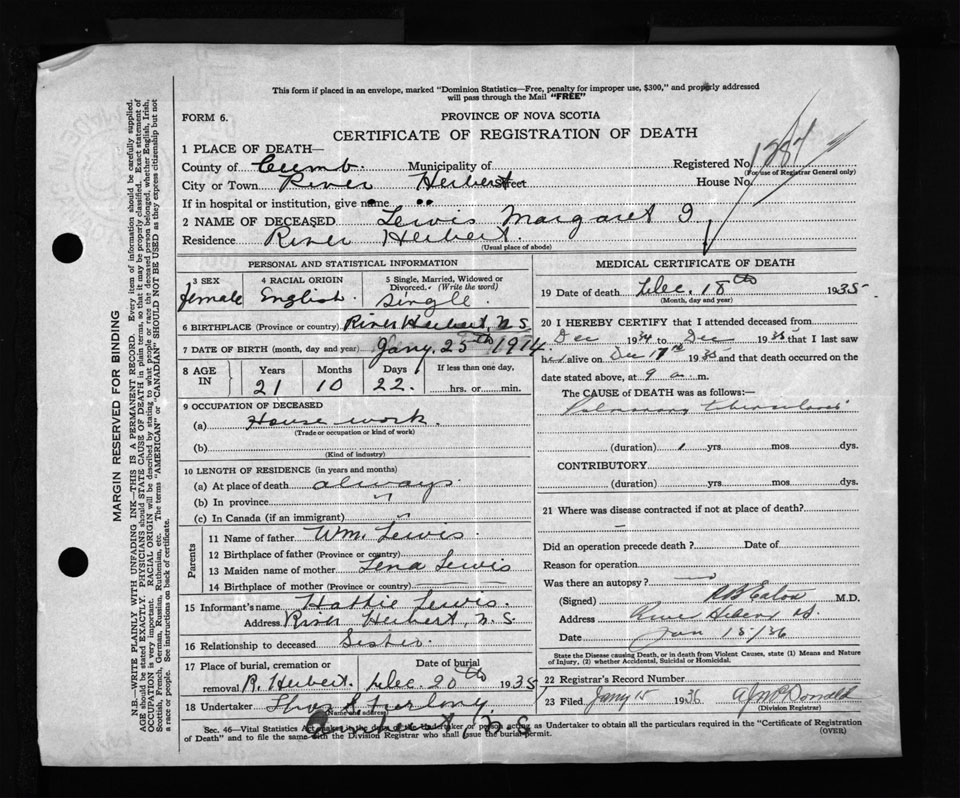 This form if placed in an envelope, marked "Dominion Statistics—Free, penalty for improper use, $300," and properly addressed
will pass through the Mail "FREE"
FORM 6.
PROVINCE OF NOVA SCOTIA
CERTIFICATE OF REGISTRATION OF DEATH
1 PLACE OF DEATH—
County of Cumb. Municipality of Registered No.
(For use of Registrar General only)
City or Town River Herbert Street House No.
If in hospital or institution, give name
2 NAME OF DECEASED Lewis Margaret I
Residence River Herbert.
(Usual place of abode)
PERSONAL AND STATISTICAL INFORMATION
3 SEX 4 RACIAL ORIGIN 5 Single, Married, Widowed or
Divorced. (Write the word)
female English. Single.
6 BIRTHPLACE (Province or country) River Herbert, N.S.
7 DATE OF BIRTH (month, day and year) Jany, 25th 1914.
8 AGE IN Years Months Days If less than one day,
21 10 22. hrs. or min.
9 OCCUPATION OF DECEASED
(a) House work.
(Trade or occupation or kind of work)
(b)
(Kind of industry)
10 LENGTH OF RESIDENCE (in years and months)
(a) At place of death always.
(b) In province "
(c) In Canada (if an immigrant) "
Parents
11 Name of father Wm. Lewis.
12 Birthplace of father (Province or country)
13 Maiden name of mother Lena Lewis
14 Birthplace of mother (Province or country)
15 Informant's name Hattie Lewis.
Address River Herbert, N.S.
16 Relationship to deceased Sister.
17 Place of burial, cremation or Date of burial
removal R. Herbert. Dec. 20th 1935
18 Undertaker Thos S. Furlong.
Amherst, N.S.
MEDICAL CERTIFICATE OF DEATH
19 Date of death Dec. 18th 1935
(Month, day and year)
20 I HEREBY CERTIFY that I attended deceased from
Dec 1934 to Dec 1935 that I last saw
her alive on Dec 17th 1935 and that death occurred on
date stated above, at 9 a. m.
The CAUSE of DEATH was as follows:
Pulmonary tuberculosis
(duration) 1 yrs. mos dys.
CONTRIBUTORY
(duration) yrs mos dys.
21 Where was disease contracted if not at place of death?
Did an operation precede death? Date of
Reason for operation
Was there an autopsy? no
(Signed) Eaton M.D.
Address River Hebert N.S.
Date Jan 15/36
State the Disease causing Death, or in death from Violent Causes, state (1) Means and Nature
of Injury, (2) whether Accidental, Suicidal or Homicidal.
22 Registrar's Record Number
23 Filed Jany 15 1936 McDonald
(Division Registrar)
Sec. 46—Vital Statistics Act as Undertaker to obtain all the particulars required in the "Certificate of Registration
of Death" and to file the same with the Division Registrar who shall issue the burial permit. (OVER)
MARGIN RESERVED FOR BINDING
N.B.—WRITE PLAINLY WITH UNFADING INK—THIS IS A PERMANENT RECORD. Every item of information should be carefully supplied.
AGE should be stated EXACTLY. PHYSICIANS should STATE CAUSE OF DEATH in plain terms, so that it may be properly classified. Exact statement of
OCCUPATION is very important. RACIAL ORIGIN will be described by stating to what people or race the deceased person belonged, whether English, Irish,
Scottish, French, German, Russian, Ruthenian, etc. The terms "AMERICAN" or "CANADIAN" SHOULD NOT BE USED as they express citizenship but not
a race or people. See instructions on back of certificate.